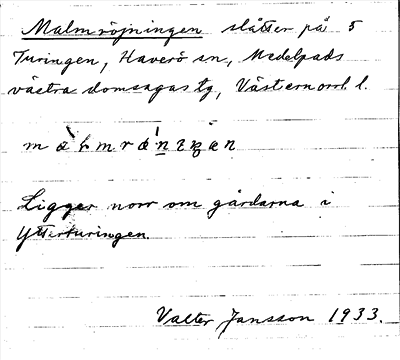 Malmröjningen slåtter på 5
Turingen, Haverö sn, Medelpads
västra domsagas tg, Västernorrl. l.
Ligger norr om gårdarna i
Ytterturingen.
Valter Jansson 1933.